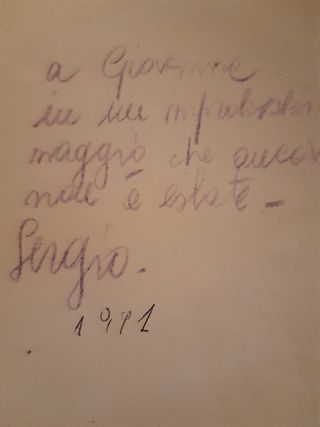 a Giovanni
in un
maggio che ancor
non è estate -
Sergio.
1991